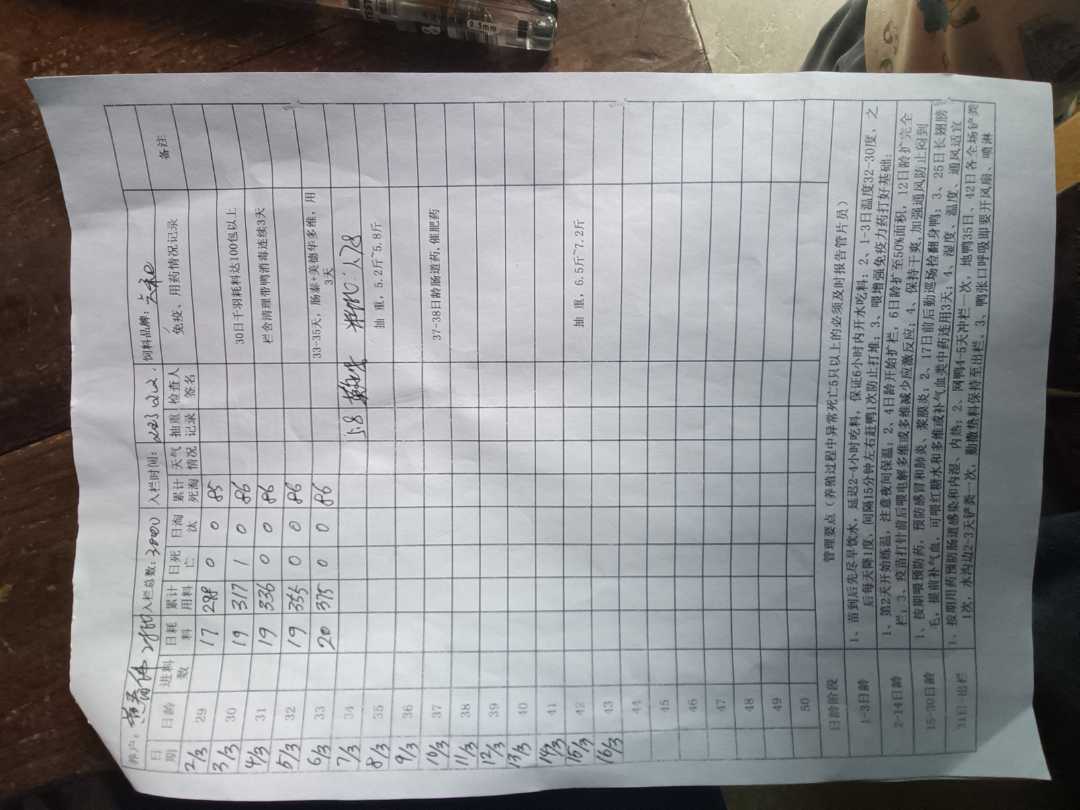 养户：黄 2860 入栏总数：3000 入栏时间： 饲料品牌：六和
日期 日龄 进料数 日耗料 累计用料 日死亡 日淘汰 累计死淘 天气情况 抽重记录 检查人签名 免疫、用药情况记录 备注
2/3 29 17 298 0 0 85
3/3 30 19 317 1 0 86 30日千羽耗料达100包以上
4/3 31 19 336 0 0 86 栏舍清理带鸭消毒连续3天
5/3 32 19 355 0 0 86
6/3 33 20 375 0 0 86 33-35天，肠泰+美德华多维，用3天
7/3 34 5.8
8/3 35 抽 重，5.2斤~5.8斤
9/3 36
10/3 37 37-38日龄肠道药,催肥药
11/3 38
12/3 39
13/3 40
14/3 41
15/3 42 抽 重，6.5斤~7.2斤
16/3 43
44
45
46
47
48
49
50
日龄阶段 管理要点（养殖过程中异常死亡5只以上的必须及时报告管片员）
1-3日龄 1、苗到后先尽早饮水，延迟2-4小时吃料，保证6小时内开水吃料；2、1-3日温度32-30度，之
后每天降1度，间隔15分钟左右赶鸭1次防止打堆；3、喂增强免疫力药打好基础；
2-14日龄 1、第2天开始炼温，注意夜间保温；2、4日龄开始扩栏，6日龄扩至50%面积，12日龄扩完全
栏；3、疫苗打针前后喂电解多维或多维减少应激反应；4、保持干爽,加强通风防止闷到
15-30日龄 1、按期喂预防药，预防感冒和肺炎、浆膜炎；2、17日前后勤巡场检翻身鸭；3、25日长翅膀
毛，提前补气血，可喂红糖水和多维或补气血类中药连用3天；4、湿度、温度、通风适宜
31日-出栏 1、按期用药预防肠道感染和内湿、内热；2、网鸭4-5天冲栏一次，地鸭35日、42日各全场铲粪
1次，水沟边2-3天铲粪一次，勤撒垫料保持至出栏。3、鸭张口呼吸即要开风扇、喷淋
0.5mm